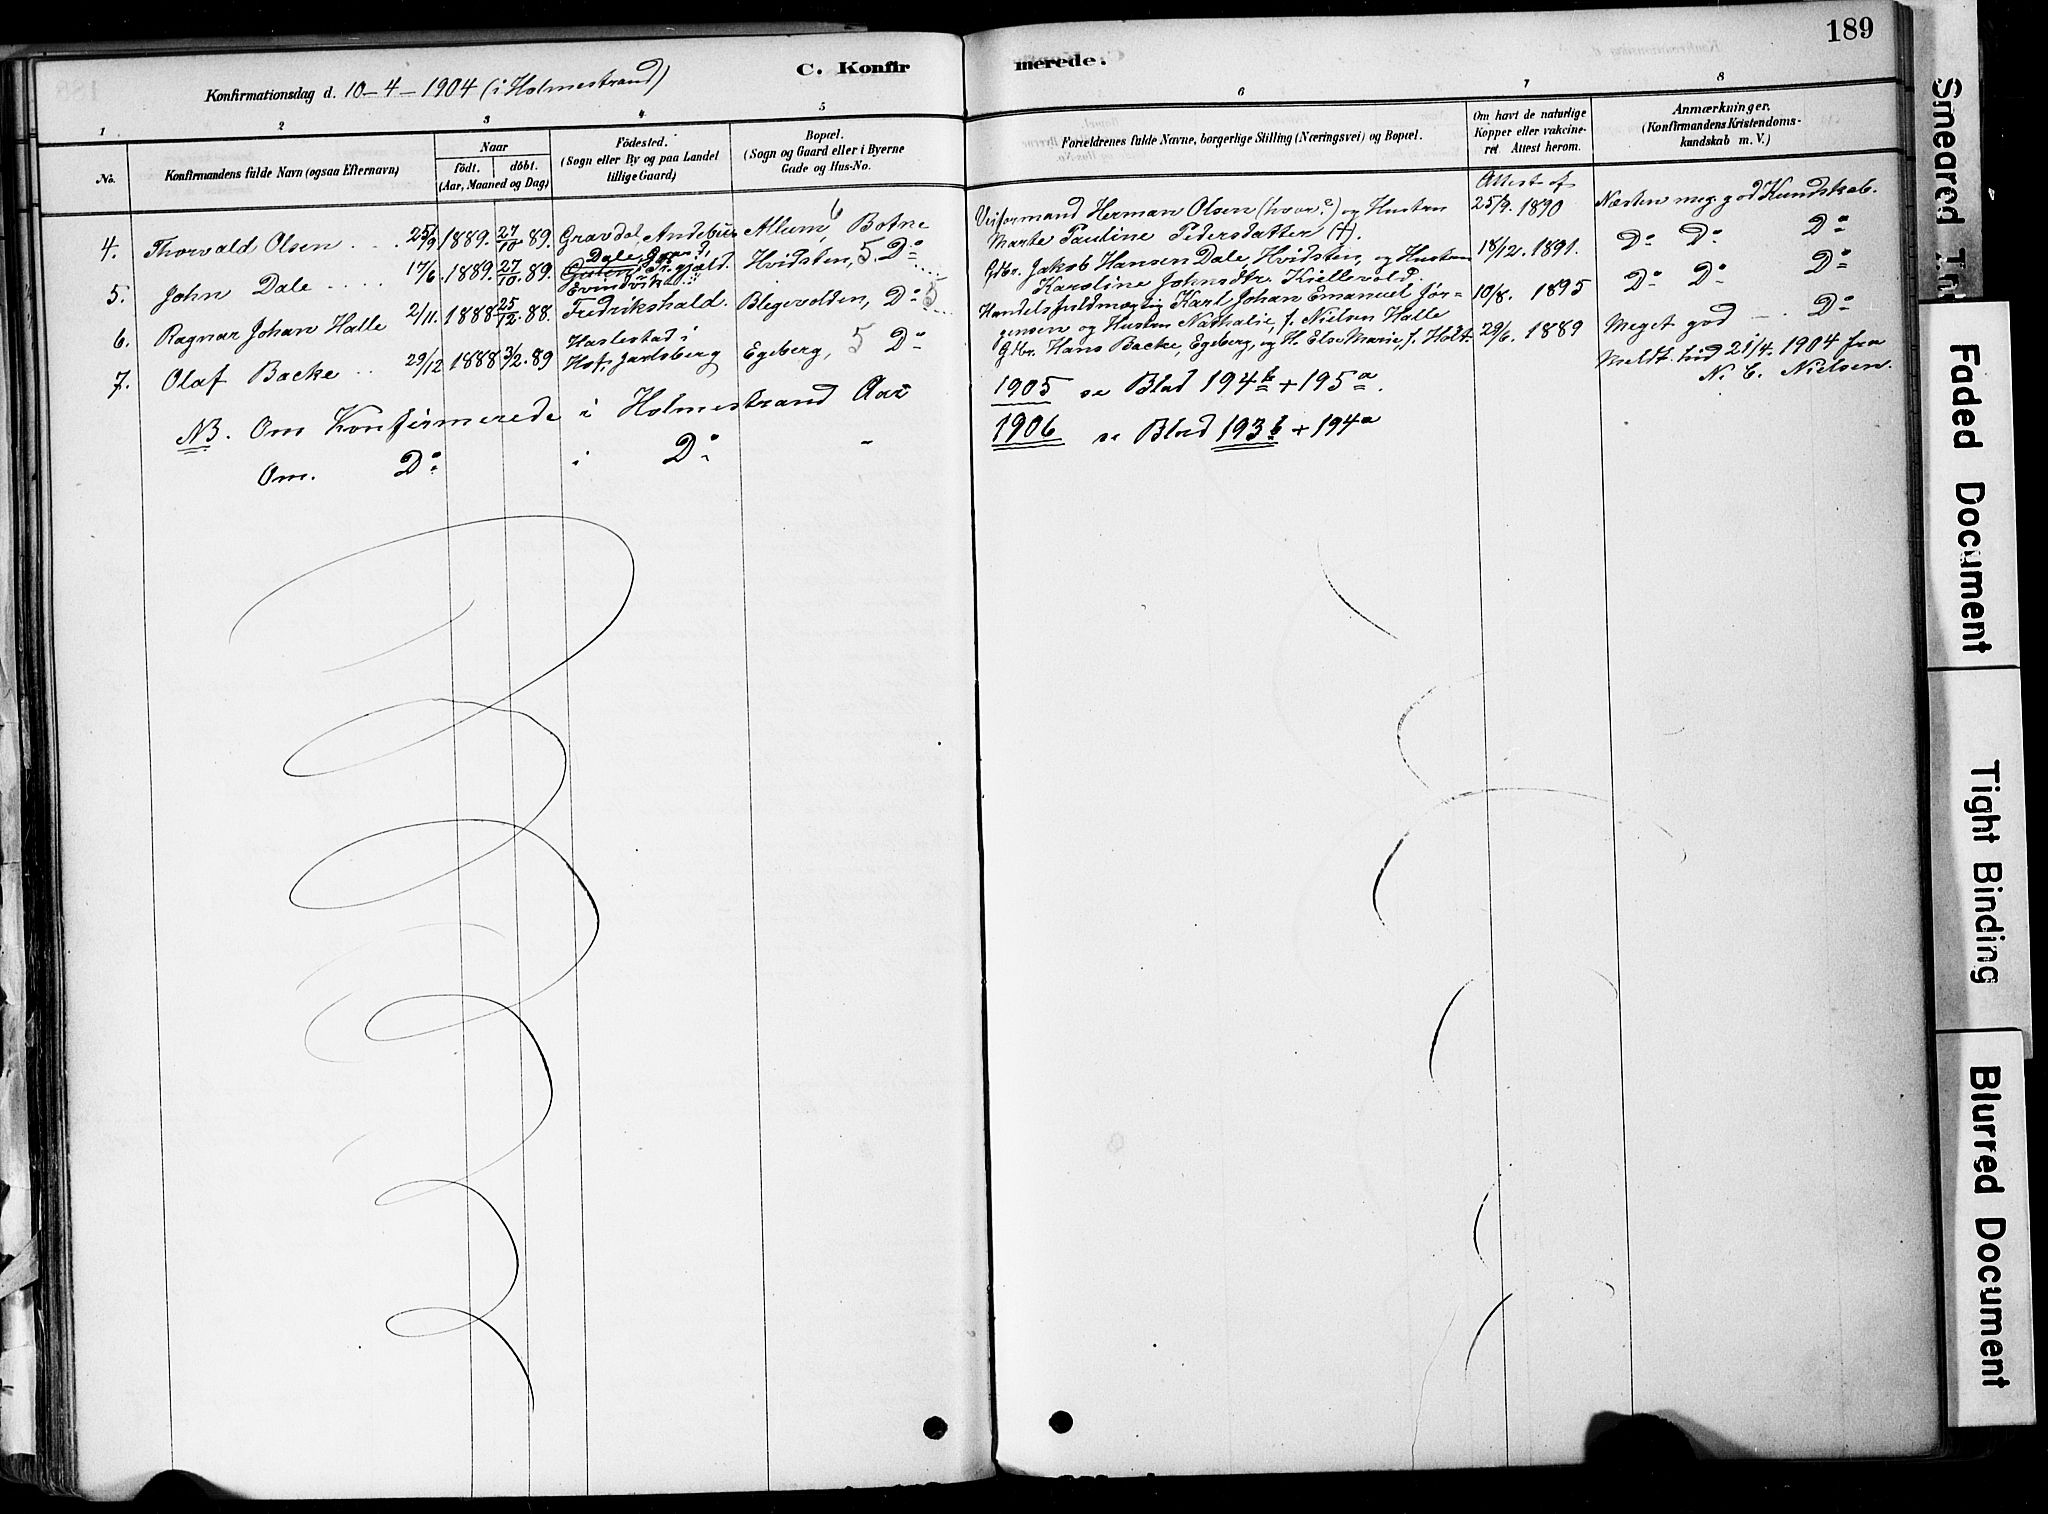 189
C. Konfirmerede.
Konfirmationsdag d. 10-4-1904 (i Holmestrand)
1 2 3 4 5 6 7 8
No.
Konfirmandens fulde Navn (ogsaa Efternavn)
Naar
födt. döbt.
(Aar, Maaned og Dag)
Födested.
(Sogn eller By og paa Landet
tillige Gaard)
Bopæl.
(Sogn og Gaard eller i Byerne
Gade og Hus-No.
Forældrenes fulde Navne, borgerlige Stilling (Næringsvei) og Bopæl.
Om havt de naturlige
Kopper eller vakcine-
ret. Attest herom.
Anmærkninger.
(Konfirmandens Kristendoms-
kundskab m. V.)
4. Thorvald Olsen 25/9 1889. 27/10 89. Gravdal, Andebu Allum, 6 Botne
Veiformand Herman Olsen (hvor?) og Hustru
Marte Pauline Pedersdatter (+).
Attest af
25/9. 1890
Næsten meg. god Kundskab.
5. John Dale 17/6. 1889. 27/10. 89. Dale, Evindvik Hvidsten, 5. Do
Gdbr. Jakob Hansen Dale, Hvidsten, og Hustru
Karoline Johnsdtr. Killevold.
18/12. 1891.
Do Do Do
6. Ragnar Johan Halle 2/11. 1888 25/12. 88. Fredrikshald. Blegevolden, Do 5
Handelsfuldmægtig Karl Johan Emanuel Jör-
gensen og Hustru Nathalie, f. Nielsen Halle
10/8. 1895
Do Do Do
7. Olaf Backe 29/12 1888 3/2. 89 Haslestad i
Hof, Jarlsberg Egeberg, 5 Do
Gdbr. Hans Backe, Egeberg, og H. Else Marie, f. Holt.
29/6. 1889
Meget god Do
Meldt hid 21/4. 1904 fra
N. C. Nielsen.
NB. Om Konfirmerede i Holmestrand Aar 1905 se Blad 194b + 195a.
Om. Do i Do " 1906 se Blad 193b + 194a
Smeared
Faded Document
Tight Binding
Blurred Document